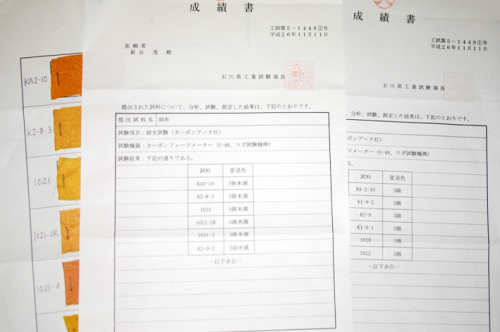 KA2-10
K2-8-3
1021
1021-2R
成績書
工試第5-1449②号
平成26年11月11日
依頼者
石川県工業試験場長
提出された試料について、分析、試験、測定した結果は、下記のとおりです。
提出試料名
試験項目:耐光試験(カーボンアーク灯)
試験機器:カーボンフェードメーター(U-48、スガ試験機㈱)
試験結果:下記の通りである。
試料 変退色
KA2-10 3級未満
K2-8-3 3級未満
1021 3級未満
1021-2R 3級未満
3級未満
K2-9-2 3級未満
-以下余白-
績書
工試第5-1448②号
平成26年11月11日
石川県工業試験場長
分析、試験、測定した結果は、下記のとおりです。
ーボンアーク灯)
ドメーター(U-48、スガ試験機㈱)
る。
試料 変退色
KA-2-10 3級
K1-9-2 3級
K2-9 3級
K1-9-1 3級
1020 3級
1022 3級
-以下余白-